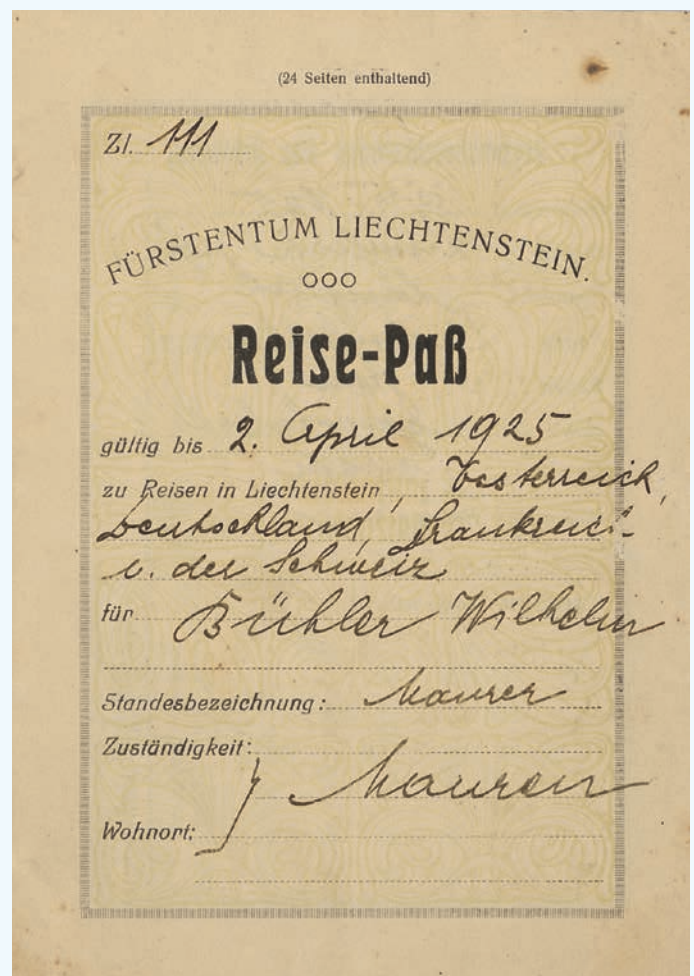 (24 Seiten enthaltend)
Zl. 111
FÜRSTENTUM LIECHTENSTEIN.
ooo
Reise-Paß
gültig bis 2. April 1925
zu Reisen in Liechtenstein, Oesterreich,
Deutschland, Frankreich
u. der Schweiz
für Bühler Wilhelm
Standesbezeichnung: Maurer
Zuständigkeit:
} Mauren
Wohnort: